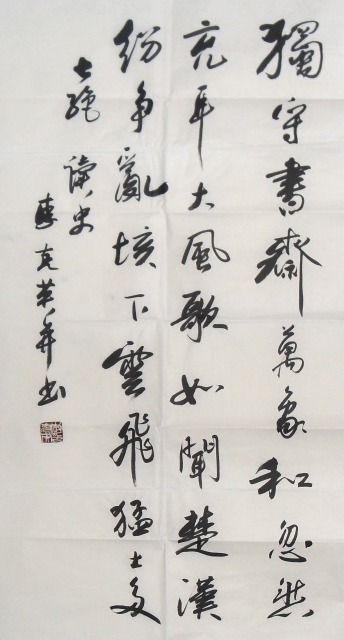 獨守書齋萬象和忽然
充耳大風歌如聞楚漢
紛爭亂垓下雲飛猛士多
七絕 讀史
李克英并書